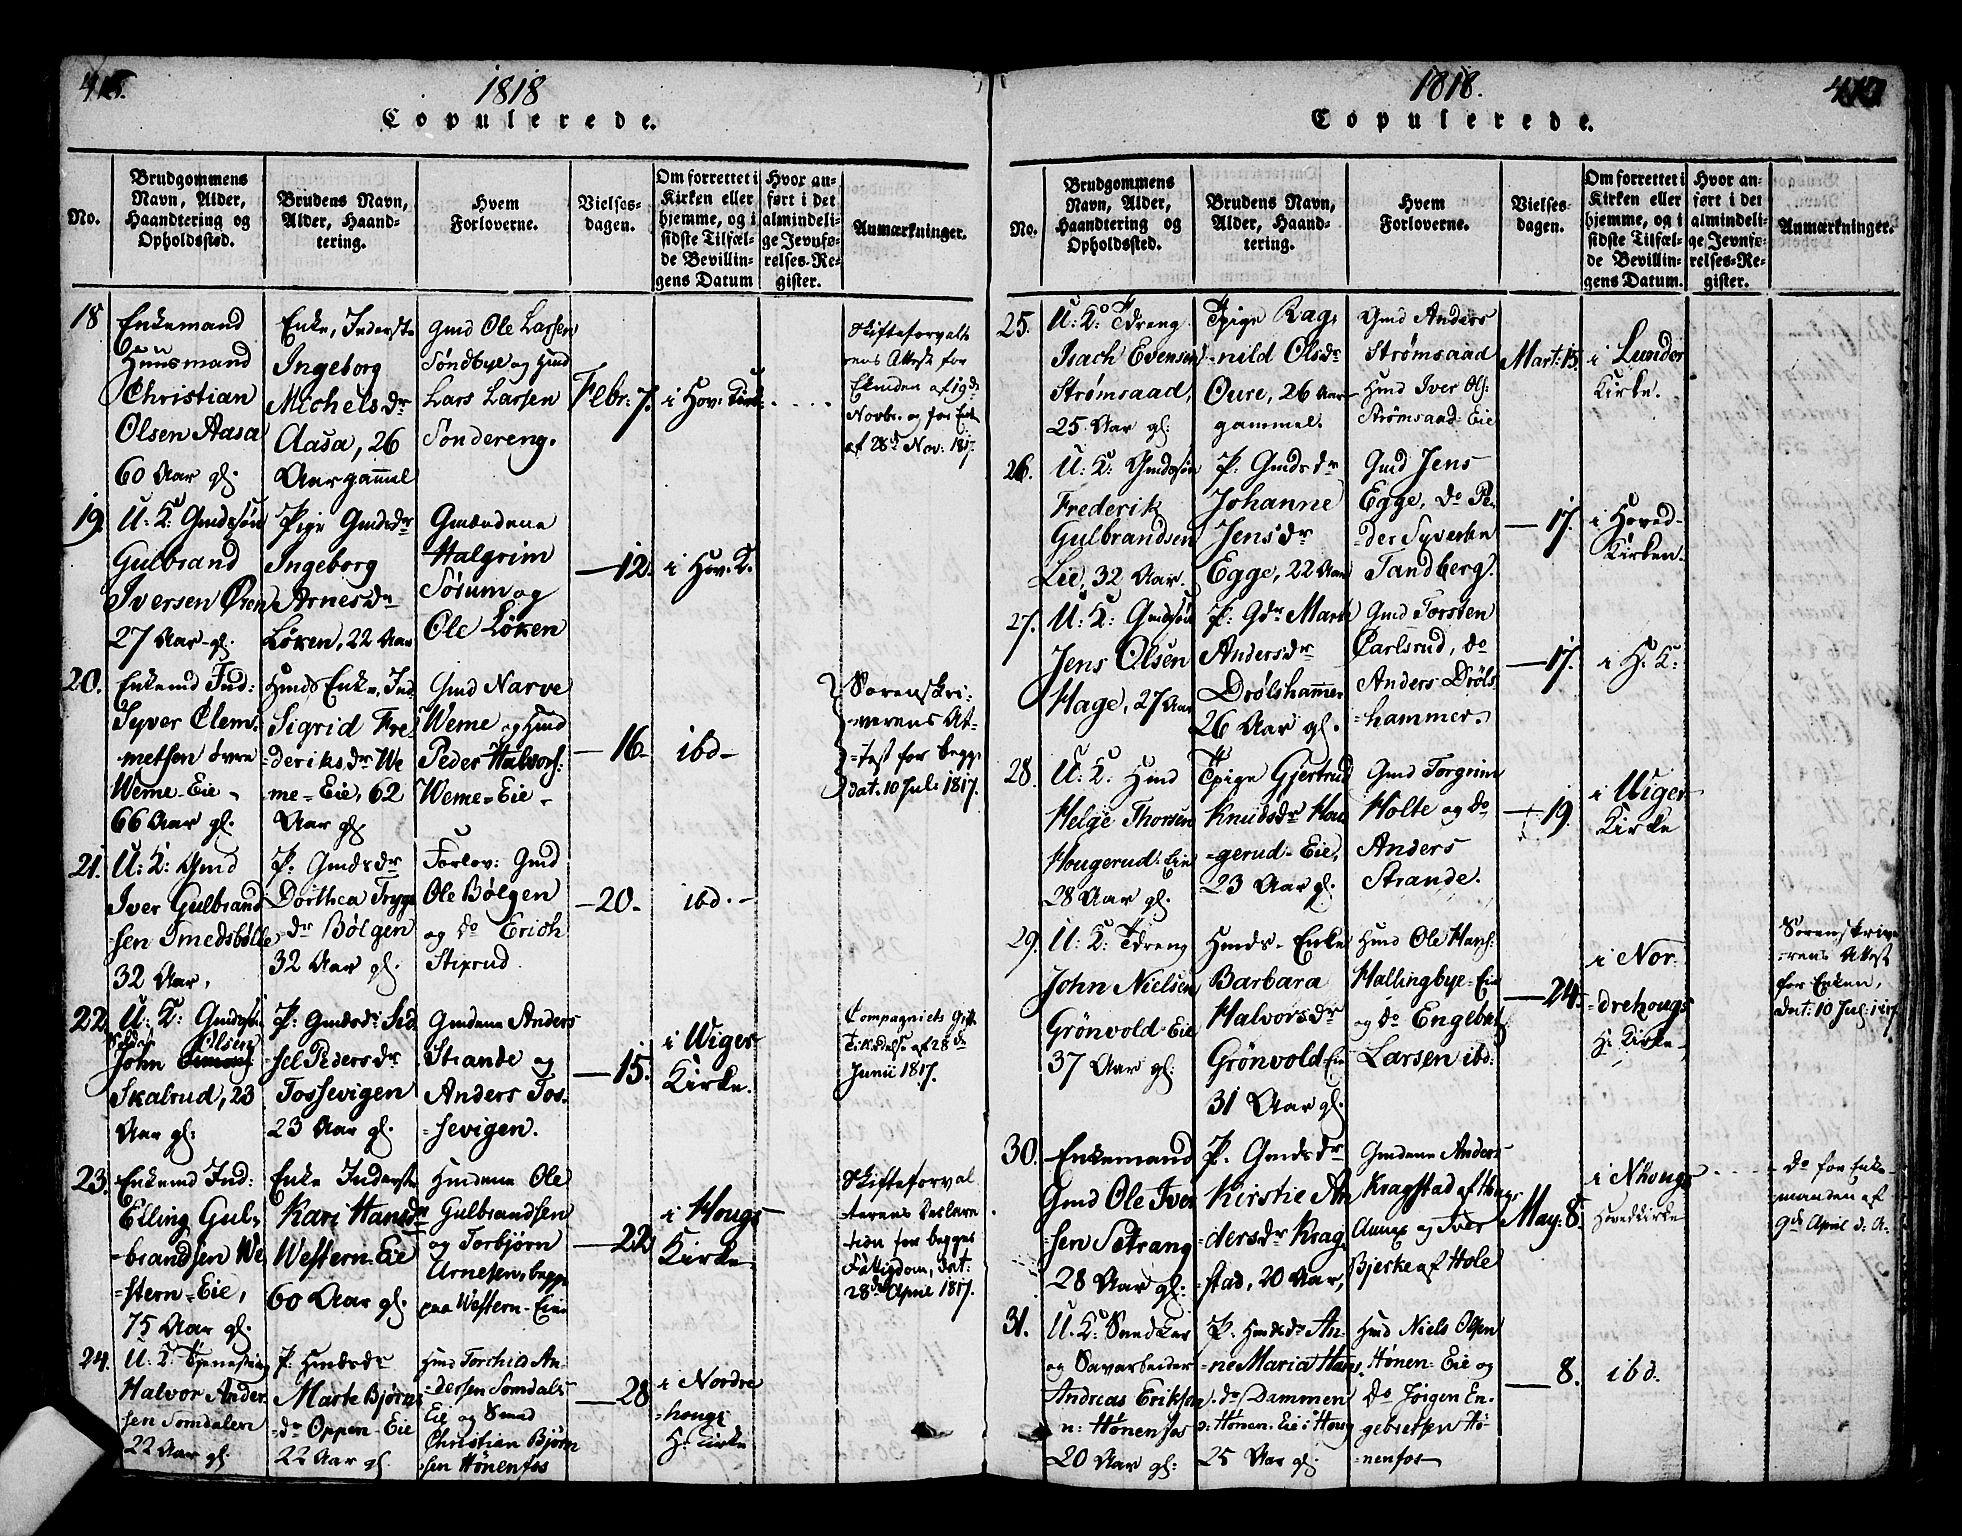 1818
Copulerede.
No.
Brudgommens
Navn, Alder,
Haandtering og
Opholdssted.
Brudens Navn,
Alder, Haand-
tering.
Hvem
Forloverne.
Vielses-
dagen.
Om forrettet i
Kirken eller
hjemme, og i
sidste Tilfæl-
de Bevillin-
gens Datum
Hvor an-
ført i det
almindeli-
ge Jevnfø-
relses-Re-
gister.
Anmærkninger.
18
Enkemand
Huusmand
Christian
Olsen Aasa
60 Aar gl.
Enke, Inderste
Ingeborg
Michelsdr
Aasa, 26
Aar gammel
Gmd Ole Larsen
Søndbye og Hmd
Lars Larsen
Søndereng.
Febr: 7.
i Hov. Kirk:
Skifteforvalte
rens Attest for
Ekmden af 19d
Novbr. og for Enk
af 28d Nov: 1817.
19.
U: K: Gmdssøn
Gulbrand
Iversen Øxen
27 Aar gl:
Pige Gmdsdr
Ingeborg
Arnesdr
Løken, 22 Aar
Gmændene
Halgrim
Sørum og
Ole Løken
—12.
i Hov. K.
20.
Enkemd Ind:
Syver Clem-
metsen øvre
Weme-Eie-
66 Aar gl.
Hmds Enke, Ind
Sigrid Fre-
deriksdr We
me-Eie, 62
Aar gl.
Gmd Narve
Weme og Hmd
Peder Halvors:
Weme-Eie-
—16-
ibd-
Sorenskri-
verens At-
test for begge
dat. 10 Juli 1817.
21.
U: K: Gmd
Iver Gulbrand
sen Smedsbølle
32 Aar,
P: Gmdsdr
Dorthea Trygs
dr Bølgen
32 Aar gl.
Forlov: Gmd
Ole Bølgen
og do Erich
Stixrud.
—20-
ibd.-
22.
U: K: Gmdssøn
Peder Olsen
John
Skalrud, 23
Aar gl:
P: Gmdsdr Sid
sel Pedersdr
Fossevigen
23 Aar gl.
Gmdene Anders
Strande og
Anders Fos-
sevigen.
—15.
i Wiger
Kirke.
Compagniets Gift
Tilladelse af 28 de
Junii 1817.
23.
Enkemd Ind:
Elling Gul-
brandsen We
stern-Eie,
75 Aar gl.
Enke Inderste
Kari Hansdr
Western-Eie
60 Aar gl.
Hmdene Ole
Gulbrandsen
og Torbjørn
Arnesen, begge
paa Western-Eie
—22
i Hougs
Kirke.
Skifteforval
terens Declara
tion for begges
Fattigdom, dat:
28de April 1817.
24.
U: K. Tjenestdreng
Halvor Ander
sen Somdalen
22 Aar gl.
P: Hmdsdr
Marte Bjørns
dr Oppen-Eie
22 Aar gl
Hmd Torchild An-
dersen Somdals
Eie og Smed
Christian Bjørn
sen Hønenfos
—28
i Nordre
hougs
H: Kirke
1818.
Copulerede.
No.
Brudgommens
Navn, Alder,
Haandtering og
Opholdssted.
Brudens Navn,
Alder, Haand-
tering.
Hvem
Forloverne.
Vielses-
dagen.
Om forrettet i
Kirken eller
hjemme, og i
sidste Tilfæl-
de Bevillin-
gens Datum.
Hvor an-
ført i det
almindeli-
ge Jevnfø-
relses-Re-
gister.
Anmærkninger.
25.
U: K: Tdreng
Isach Evensen
Strømsaad,
25 Aar gl:
Tpige Rag-
nild Olsdr
Oure, 26 Aar
gammel.
Gmd Anders
Strømsaad
Hmd Iver Ols:
Strømsaad-Eie
Mart: 15.
i Lunder
Kirke.
26.
U: K: Gmdssøn
Frederik
Gulbrandsen
Lie, 32 Aar.
P: Gmdsdr
Johanne
Jensdr
Egge, 22 Aar
Gmd Jens
Egge, do Pe-
der Syversen
Tandberg.
—17.
i Hoved-
Kirken.
27.
U: K: Gmdssøn
Jens Olsen
Hage, 27 Aar
P: Gdr Marte
Andersdr
Drølshammer
26 Aar gl.
Gmd Torsten
Carlsrud, do
Anders Drøls
hammer.
—17.
i H: K:
28.
U: K: Hmd
Helge Thorsen
Hougerud-Eie
28 Aar gl.
Tpige Gjertrud
Knudsdr Hou
gerud-Eie,
23 Aar gl.
Gmd Torgrim
Holte og do
Anders
Strande.
—19.
i Wiger
Kirke
29.
U: K: Tdreng
John Nielsen
Grönvold-Eie
37 Aar gl.
Hmds-Enke
Barbara
Halvorsdr
Grönvold-Eie
31 Aar gl.
Hmd Ole Hans:
Hallingbye-Eie
og do Engebret
Larsen ibd.
—24.
i Nor-
drehougs
H: Kirke-
Sorenskrive
rens Attest
for Enken,
dat: 10 Jul: 1817
30.
Enkemand
Gmd Ole Iver
sen Setrang
28 Aar gl:
P. Gmdsdr
Kirstie An
dersdr Krag-
stad, 20 Aar,
Gmdene Anders
Kragstad af Hougs
Annex og Iver
Bjerke af Hole
May: 8.
i Nhougs
Hovedkirke
do for Enke-
manden af
9de April d: A.
31.
U. K: Snedker
og Savarbeider
Andreas Eriksen
n: Hönenfos
20 Aar gl:
P. Hmdsdr An-
ne Maria Hans
dr Dammen
p: Hönen-Eie i Houg
25 Aar gl.
Hmd Niels Olsen
Hönen-Eie og
do Jörgen En-
gebretsen Hö-
nenfos
—8.
ibd.